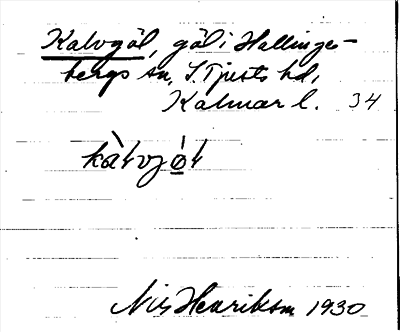 Kalvgöl, göl i Hallinge-
bergs sn, S. Tjusts hd,
Kalmar l. 34
kàlvjǫ́l
Nils Henriksson 1930